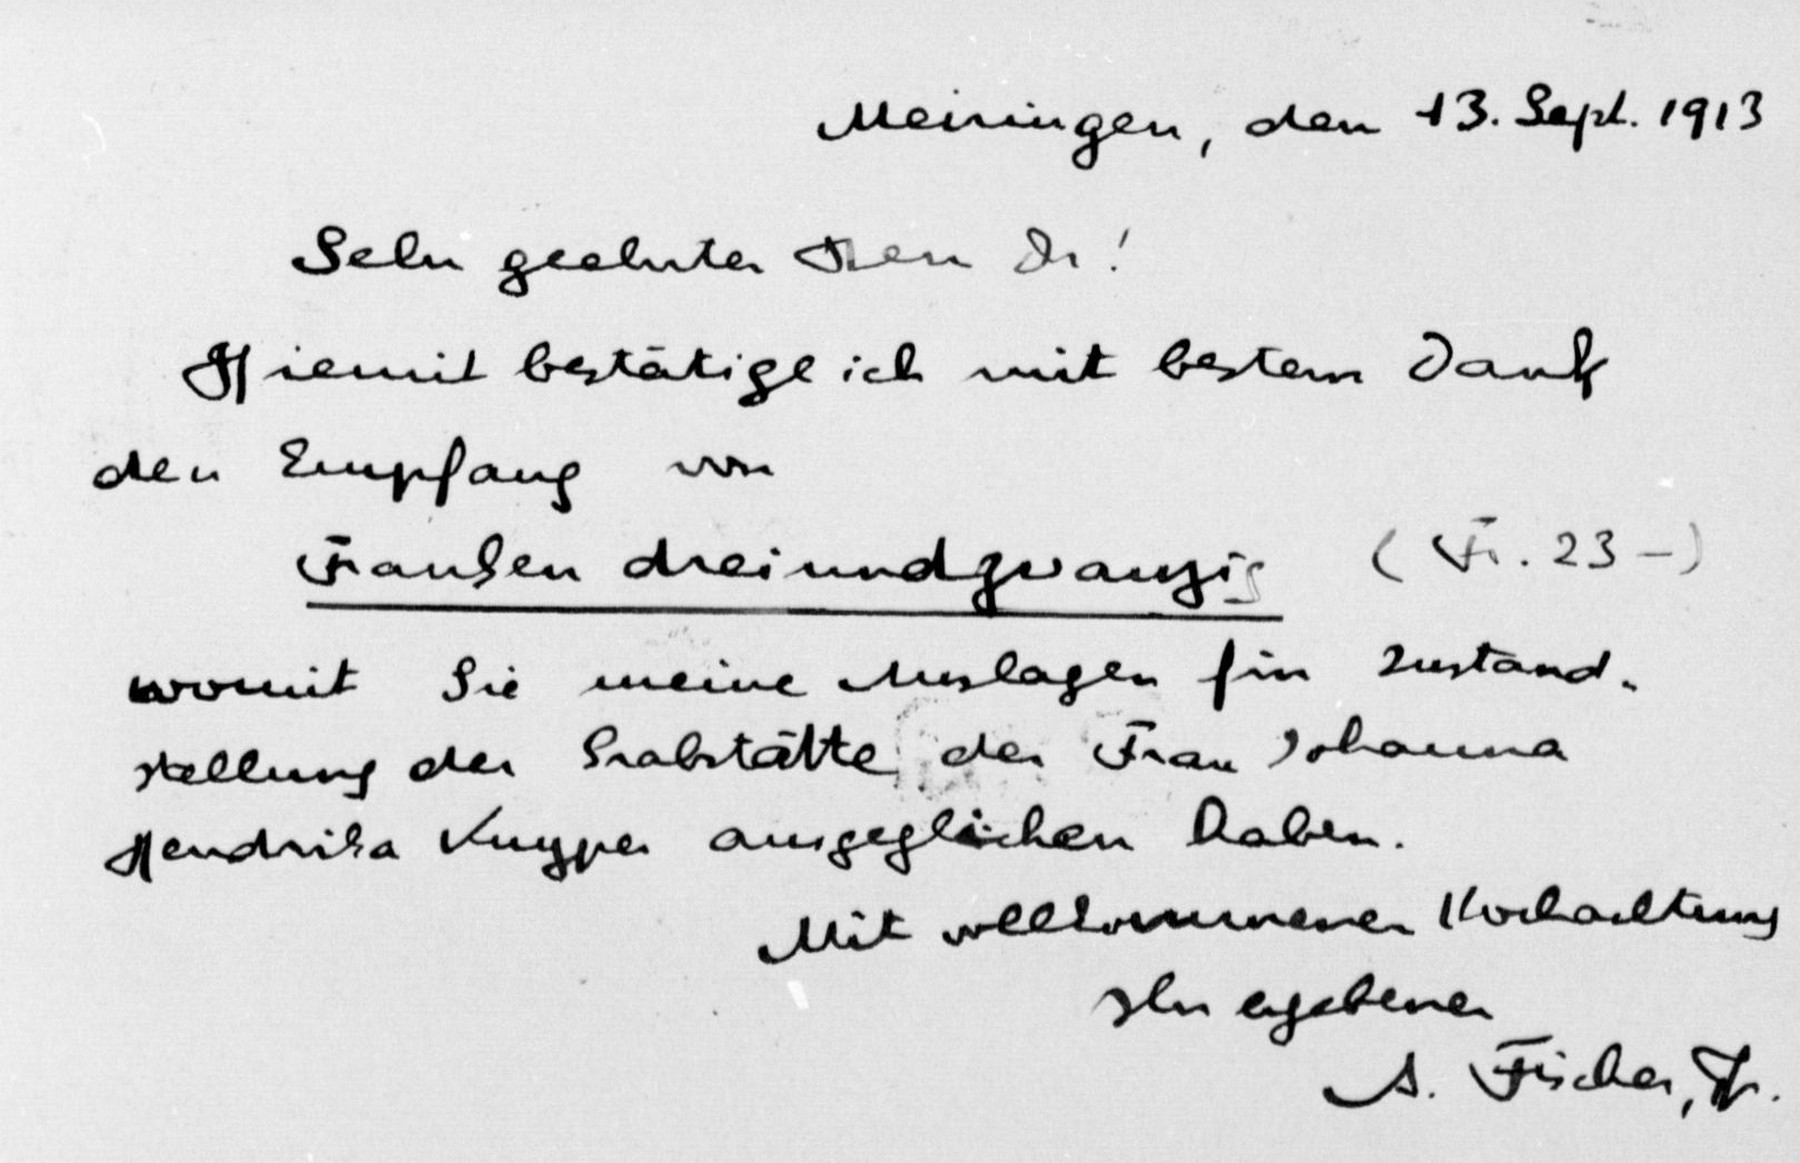 Meiringen, den 13. Sept. 1913
Sehr geehrter Herr Dr!
Hiemit bestätige ich mit bestem Dank
den Empfang von
Franken dreiundzwanzig (Fr. 23 –)
womit Sie meine Auslagen für Instand-
stellung der Grabstätte der Frau Johanna
Hendrika Kuyper ausgeglichen haben.
Mit vollkommener Hochachtung
Ihr ergebener
A. Fischer, Pfr.